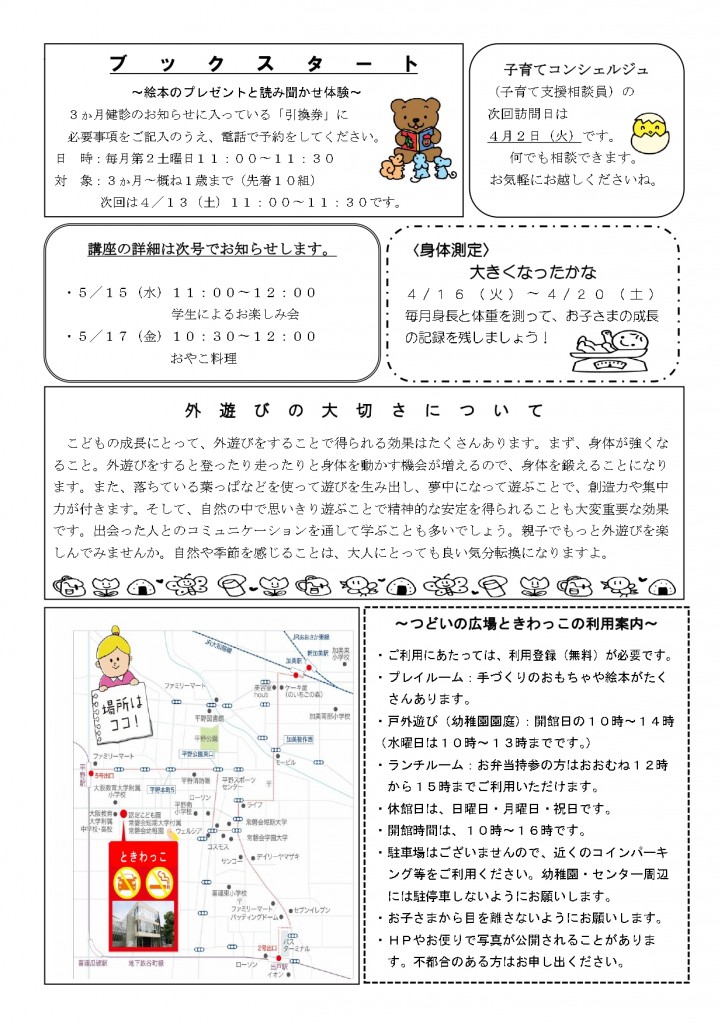 ブックスタート
～絵本のプレゼントと読み聞かせ体験～
３か月健診のお知らせに入っている「引換券」に
必要事項をご記入のうえ、電話で予約をしてください。
日　時：毎月第２土曜日１１：００～１１：３０
対　象：３か月～概ね１歳まで（先着１０組）
次回は４／１３（土）１１：００～１１：３０です。
子育てコンシェルジュ
（子育て支援相談員）の
次回訪問日は
４月２日（火）です。
何でも相談できます。
お気軽にお越しくださいね。
講座の詳細は次号でお知らせします。
・５／１５（水）１１：００～１２：００
学生によるお楽しみ会
・５／１７（金）１０：３０～１２：００
おやこ料理
〈身体測定〉
大きくなったかな
４／１６（火）～４／２０（土）
毎月身長と体重を測って、お子さまの成長
の記録を残しましょう！
外遊びの大切さについて
こどもの成長にとって、外遊びをすることで得られる効果はたくさんあります。まず、身体が強くな
ること。外遊びをすると登ったり走ったりと身体を動かす機会が増えるので、身体を鍛えることになり
ます。また、落ちている葉っぱなどを使って遊びを生み出し、夢中になって遊ぶことで、創造力や集中
力が付きます。そして、自然の中で思いきり遊ぶことで精神的な安定を得られることも大変重要な効果
です。出会った人とのコミュニケーションを通して学ぶことも多いでしょう。親子でもっと外遊びを楽
しんでみませんか。自然や季節を感じることは、大人にとっても良い気分転換になりますよ。
場所は
ココ！
JR大和路線
JRおおさか東線
新加美駅
加美駅
加美東小学校
ファミリーマート
平野図書館
美容室
ケーキ屋
（のいちごの森）
加美南部小学校
平野公園
加美鞍作西
平野公園東口
モービル
ファミリーマート
平野駅
5号出口
平野消防署
平野スポーツ
センター
大阪教育大学附属
小学校
平野本町5
ローソン
平野南
小学校
ライフ
大阪教育
大学附属
中学校・高校
認定こども園
常磐会短期大学付属
常磐会幼稚園
ウェルシア
常磐会短期大学
常磐会学園大学
コスモス
サンコー
デイリーヤマザキ
ときわっこ
喜連東小学校
ファミリーマート
バッティングドーム
セブンイレブン
バス
ターミナル
2号出口
ローソン
出戸駅
イオン
喜連瓜破駅
地下鉄谷町線
～つどいの広場ときわっこの利用案内～
・ご利用にあたっては、利用登録（無料）が必要です。
・プレイルーム：手づくりのおもちゃや絵本がたく
さんあります。
・戸外遊び（幼稚園園庭）：開館日の１０時～１４時
（水曜日は１０時～１３時までです。）
・ランチルーム：お弁当持参の方はおおむね１２時
から１５時までご利用いただけます。
・休館日は、日曜日・月曜日・祝日です。
・開館時間は、１０時～１６時です。
・駐車場はございませんので、近くのコインパーキ
ング等をご利用ください。幼稚園・センター周辺
には駐停車しないようにお願いします。
・お子さまから目を離さないようにお願いします。
・ＨＰやお便りで写真が公開されることがありま
す。不都合のある方はお申し出ください。